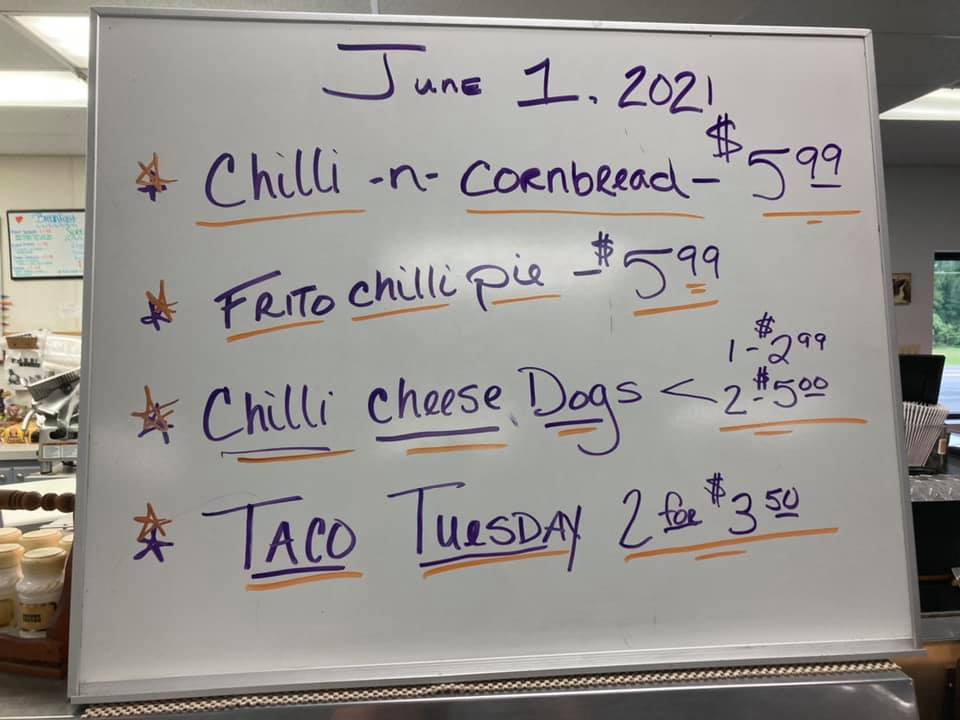 June 1, 2021
Chilli -n- Cornbread - $5.99
Frito chilli pie - $5.99
1 - $2.99
Chilli cheese Dogs < 2 - $5.00
Taco Tuesday 2 for $3.50
Breakfast